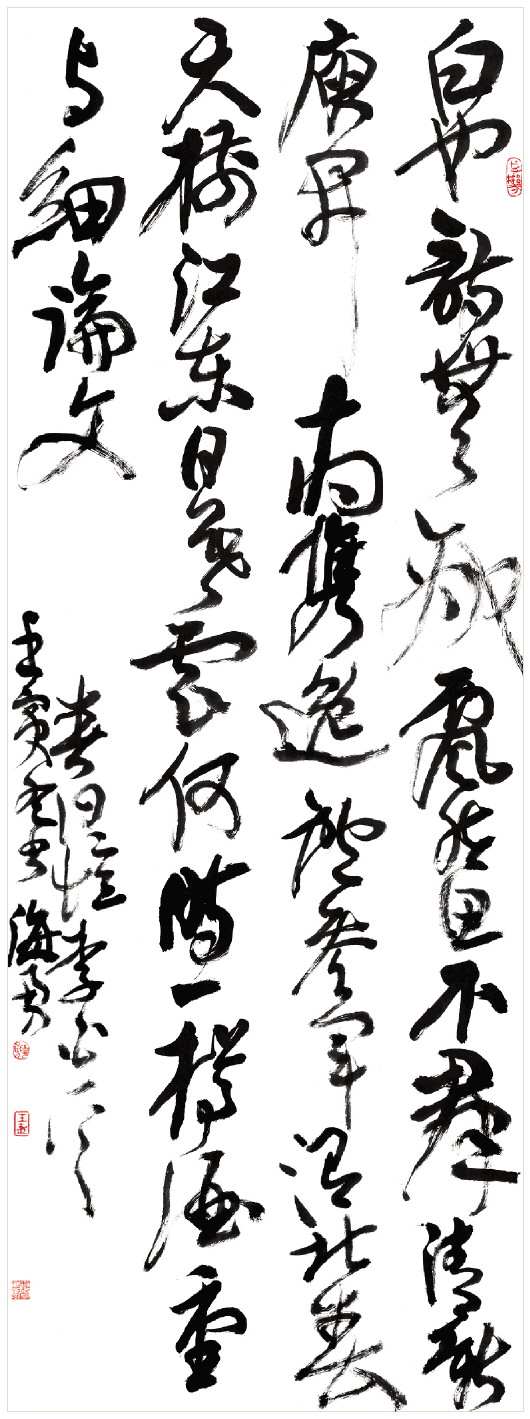 白也詩無敵飄然思不羣清新
庾開府儁逸鮑參軍渭北春
天樹江東日暮雲何時一樽酒重
与細論文
春日憶李白一首
壬寅書海勇